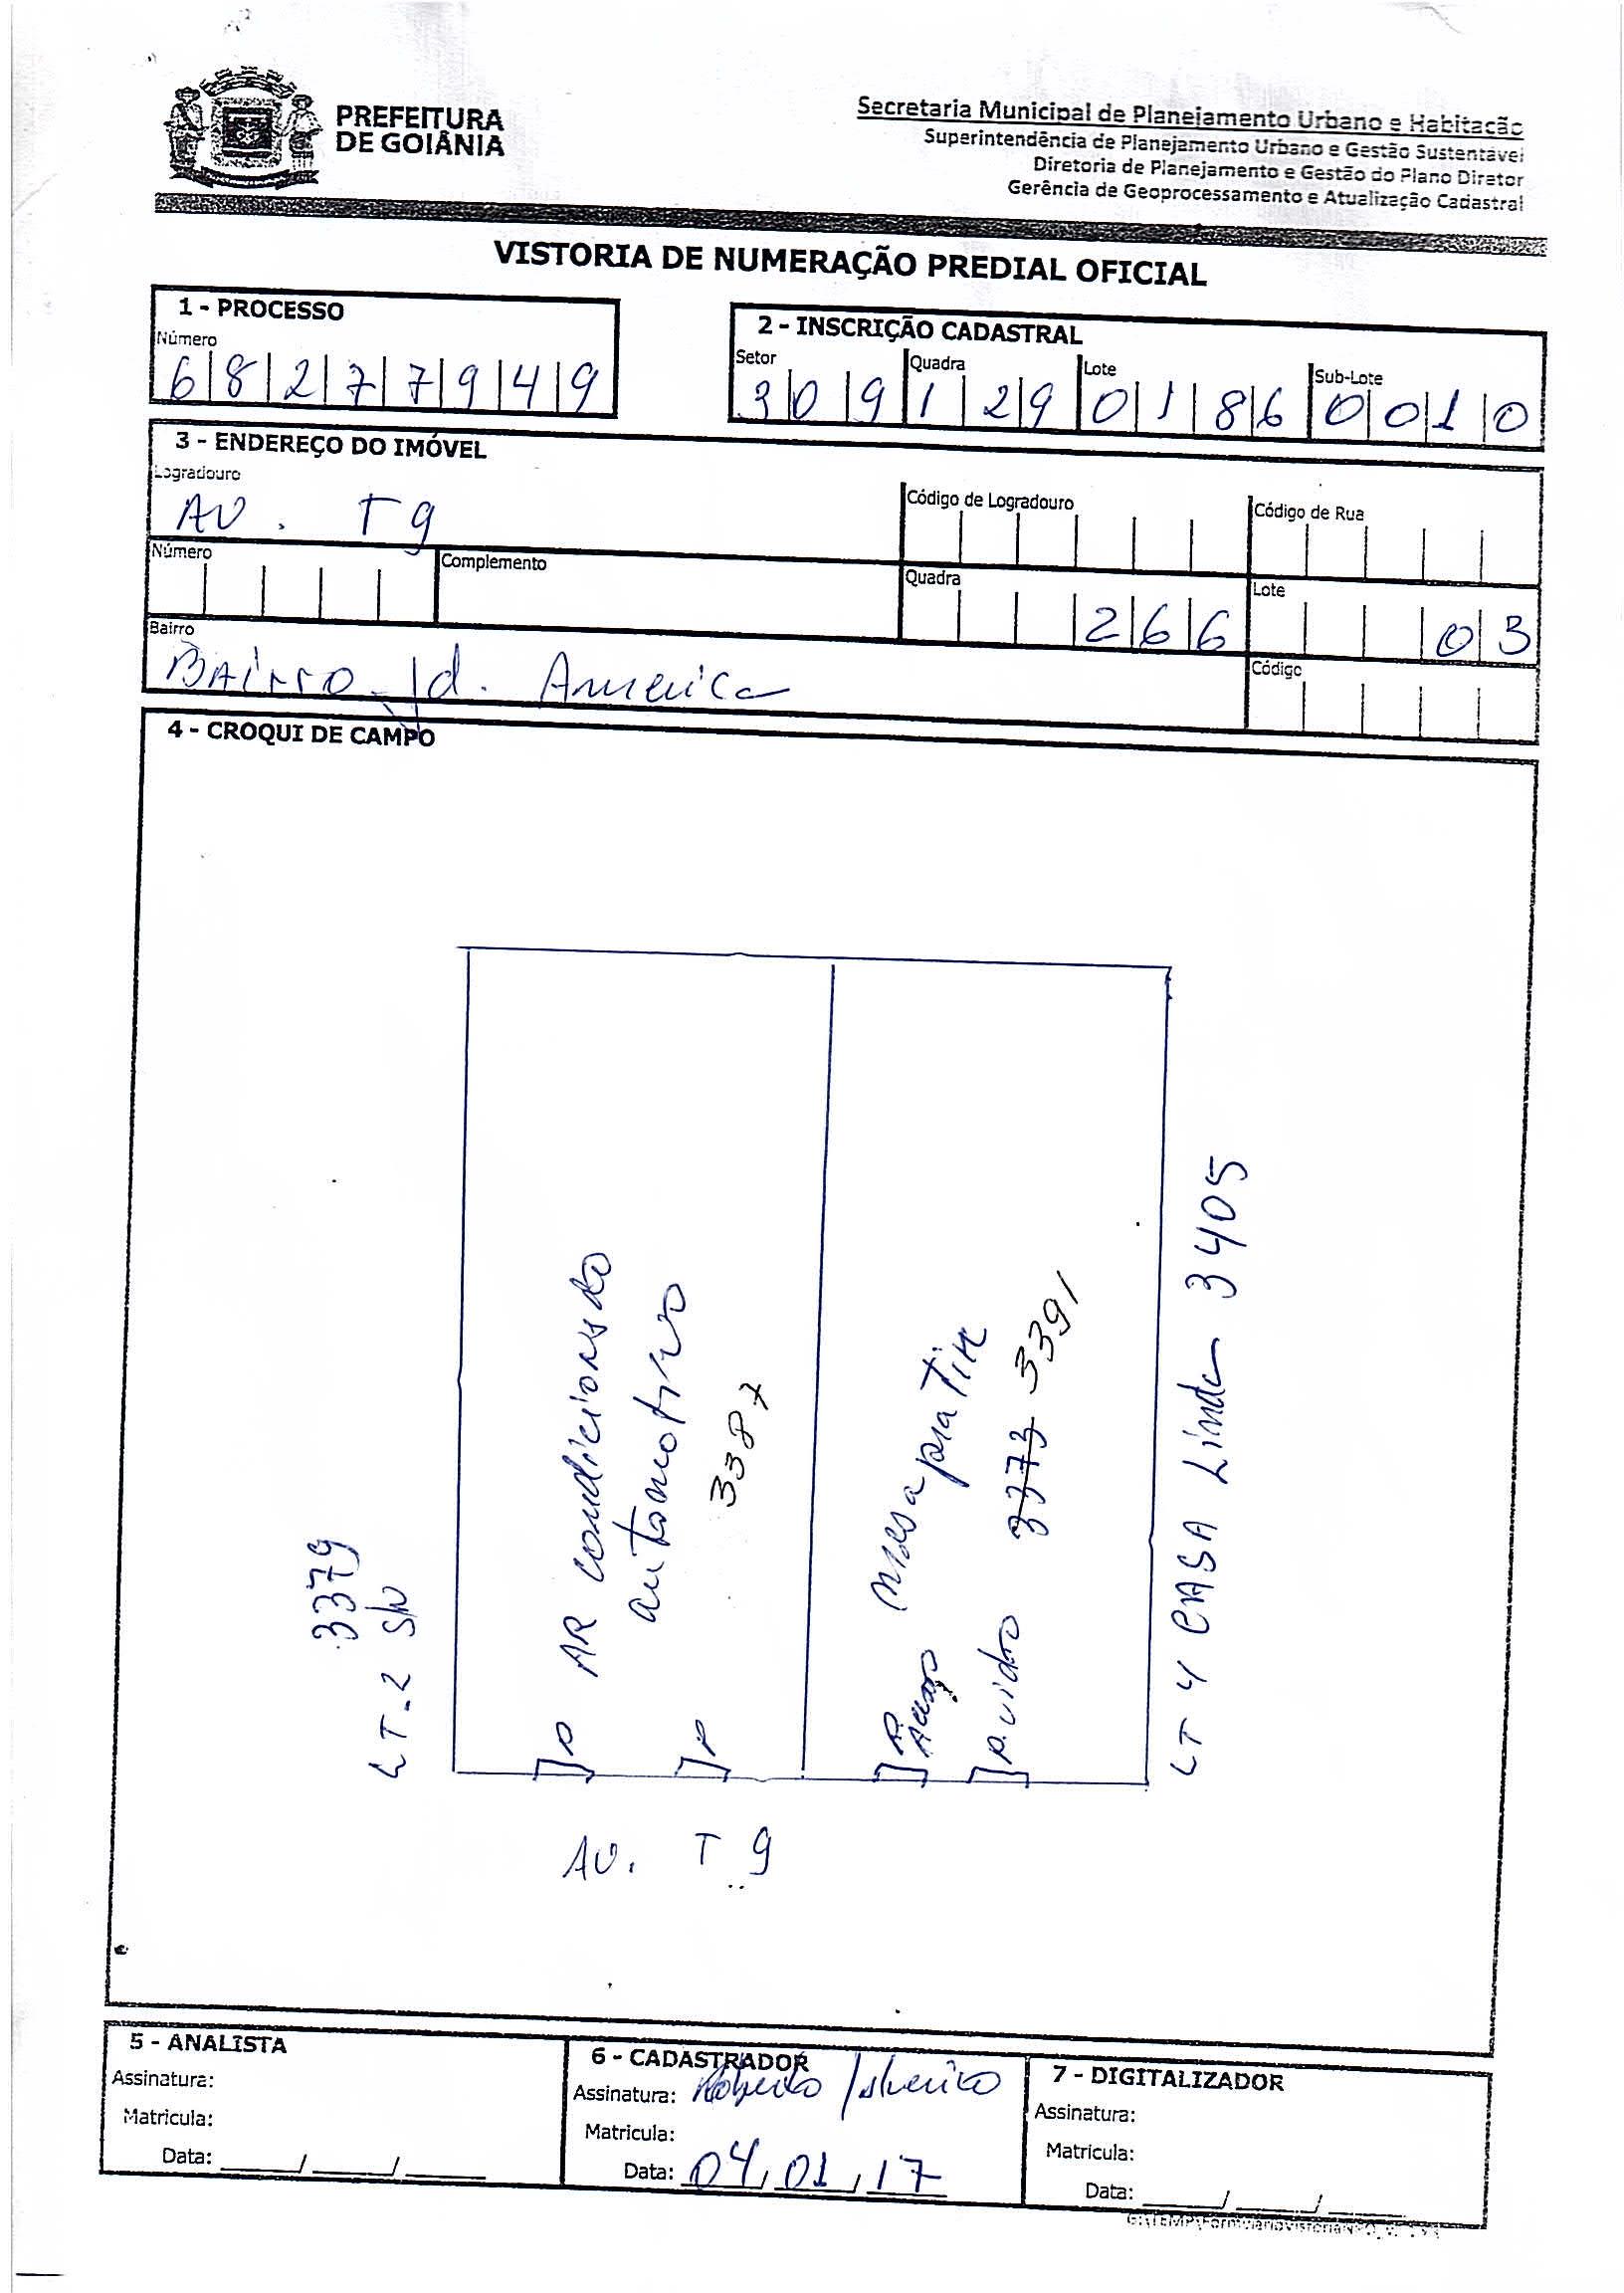 PREFEITURA
DE GOIÂNIA
Secretaria Municipal de Planejamento Urbano e Habitação
Superintendência de Planejamento Urbano e Gestão Sustentável
Diretoria de Planejamento e Gestão do Plano Diretor
Gerência de Geoprocessamento e Atualização Cadastral
VISTORIA DE NUMERAÇÃO PREDIAL OFICIAL
1 - PROCESSO
Número
6 8 2 7 7 9 4 9
2 - INSCRIÇÃO CADASTRAL
Setor Quadra Lote Sub-Lote
3 0 9 1 2 9 0 1 8 6 0 0 1 0
3 - ENDEREÇO DO IMÓVEL
Logradouro
AV. T 9
Código de Logradouro
Código de Rua
Número
Complemento
Quadra
2 6 6
Lote
0 3
Bairro
BAirro Jd. America
Código
4 - CROQUI DE CAMPO
3379
LT-2 S/N
AR condicionado
automotivo
3387
P
P
mesa pra Tik
3373 3391
P. Acesso
P. vidro
LT 4 CASA Linda 3405
AV. T 9
5 - ANALISTA
Assinatura:
Matricula:
Data: ____/____/____
6 - CADASTRADOR
Assinatura: Roberto
Matricula:
Data: 04/01/17
7 - DIGITALIZADOR
Assinatura:
Matricula:
Data: ____/____/____